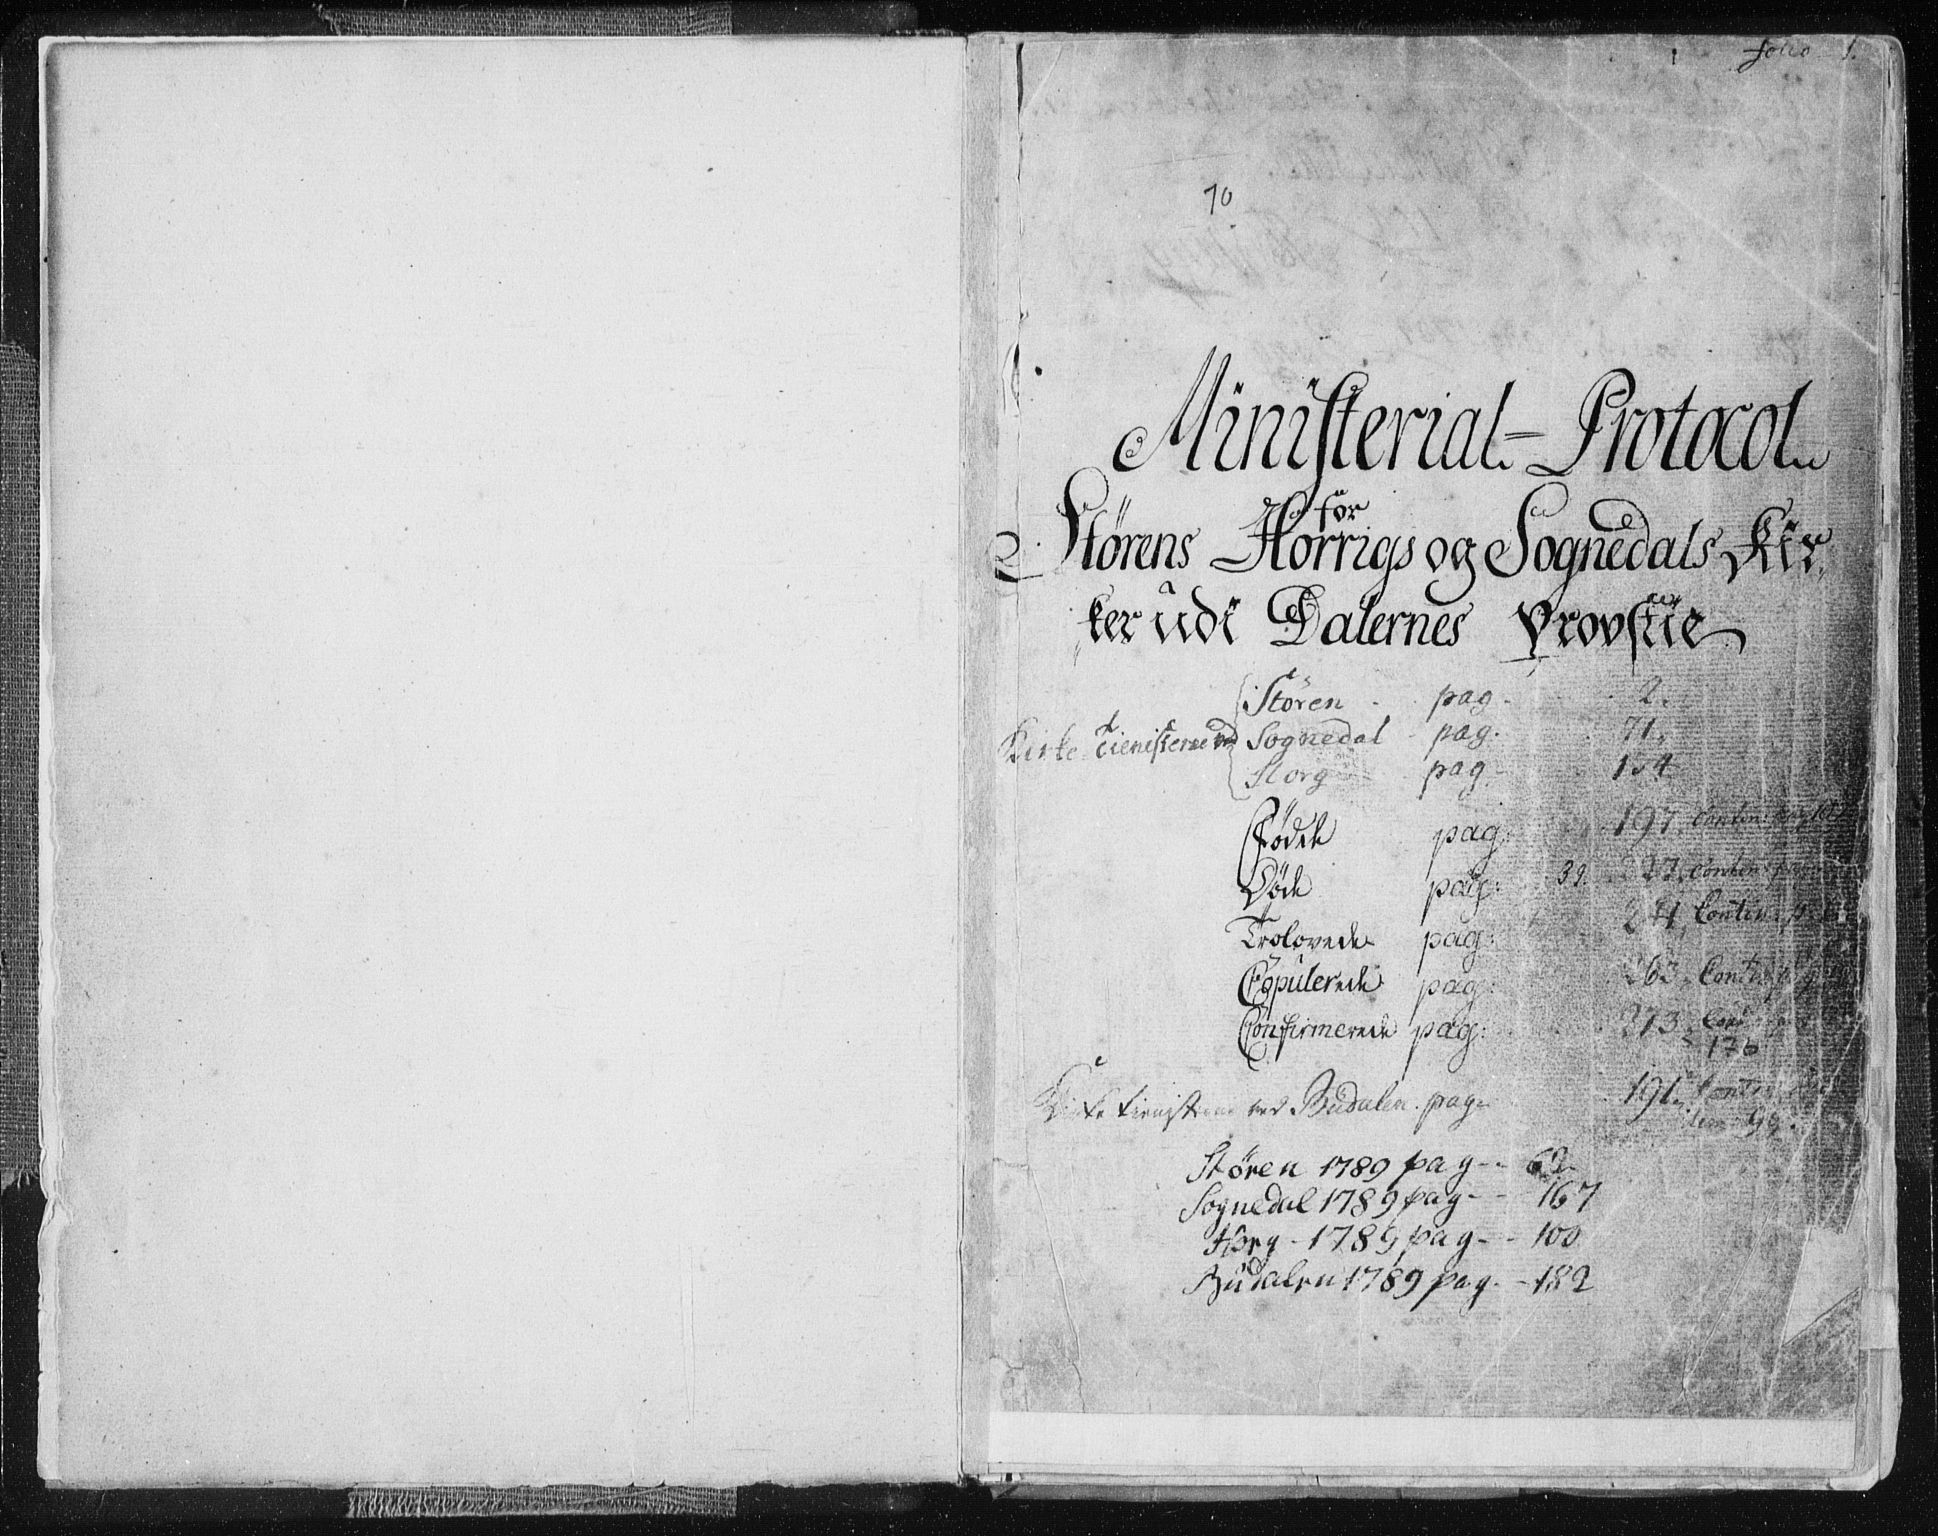 folio 1.
70
Ministerial-Protocol
for
Störens Horrigs og Sognedals Kir
ker udi Dalernes Provstie
Kirke-tienisterne ved
Stören pag. 2.
Sognedal pag. 71.
Horg pag. 154
Födde pag: 197, Contin: pag
Döde pag: 39. 227, Contin: pag
Trolovede pag: Contin: p.
Copulerede pag: 263. Contin: pag
Confirmerede pag: 273.
176
Kirke tienisterne ved Budalen. pag. 191. Contin
99.
Stören 1789 pag-- 62.
Sognedal 1789 pag-- 167
Horg - 1789 pag-- 100
Budalen 1789 pag. - 182